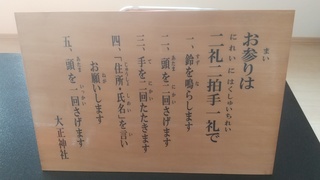 お参りは
二礼二拍手一礼で
一、鈴を鳴らします
二、頭を二回さげます
三、手を二回たたきます
四、「住所・氏名」を言い
お願いします
五、頭を一回さげます
大正神社